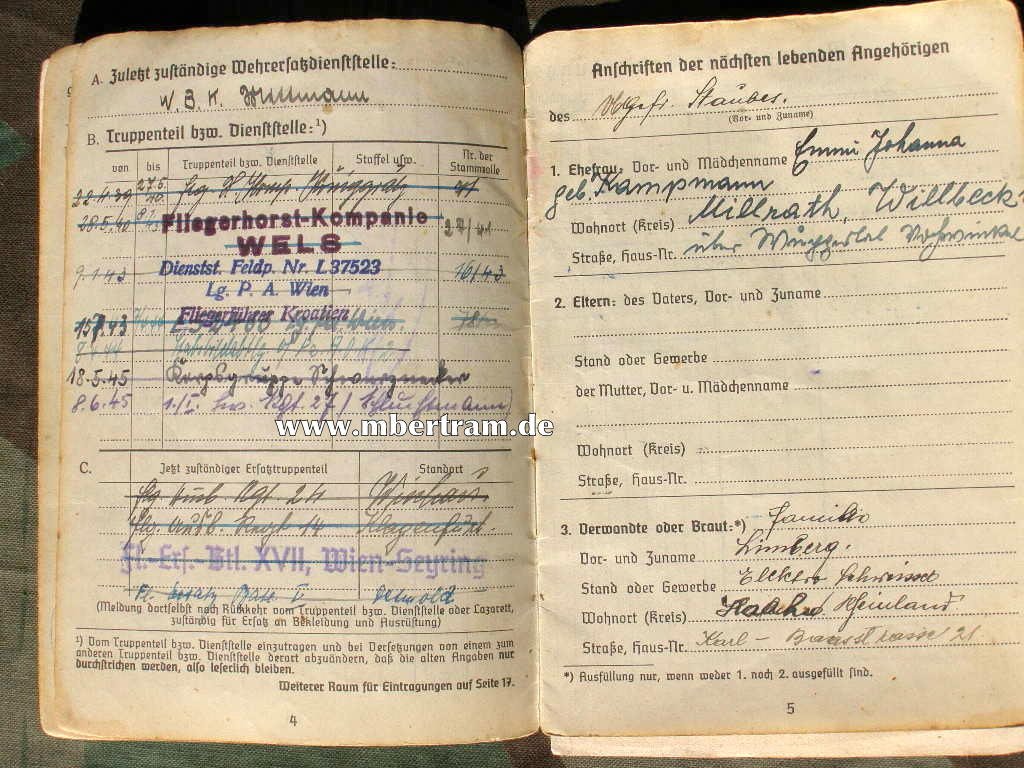 A. Zuletzt zuständige Wehrersatzdienststelle:
W. B. K.
B. Truppenteil bzw. Dienststelle:¹)
von bis Truppenteil bzw. Dienststelle Staffel usw. Nr. der Stammrolle
22.4.39 27.5.40 Königgrätz
28.5.40 Fliegerhorst-Kompanie 27/41
WELS
9.1.43 Dienstst. Feldp. Nr. L 37523 16/43
Lg. P. A. Wien
15.7.43 Fliegerführer Kroatien
18.5.45 Korpsgruppe Schwarznecker
8.6.45 1./I. Lw. Rgt. 27
www.mbertram.de
C. Jetzt zuständiger Ersatztruppenteil Standort
Flg. Ausb. Rgt 24
Flg. Ausb. Regt 14 Klagenfurt.
Fl.-Ers.-Btl. XVII, Wien-Seyring
Detmold
(Meldung dortselbst nach Rückkehr vom Truppenteil bzw. Dienststelle oder Lazarett,
zuständig für Ersatz an Bekleidung und Ausrüstung)
¹) Vom Truppenteil bzw. Dienststelle einzutragen und bei Versetzungen von einem zum
anderen Truppenteil bzw. Dienststelle derart abzuändern, daß die alten Angaben nur
durchstrichen werden, also leserlich bleiben.
Weiterer Raum für Eintragungen auf Seite 17.
4
Anschriften der nächsten lebenden Angehörigen
des Obgefr. Stauber.
(Vor- und Zuname)
1. Ehefrau, Vor- und Mädchenname Emmi Johanna
geb. Kampmann
Wohnort (Kreis) Millrath, Willbeck
Straße, Haus-Nr. über Vohwinkel
2. Eltern: des Vaters, Vor- und Zuname
Stand oder Gewerbe
der Mutter, Vor- u. Mädchenname
Wohnort (Kreis)
Straße, Haus-Nr.
3. Verwandte oder Braut:*) Familie
Vor- und Zuname Limberg.
Stand oder Gewerbe Elektro
Wohnort (Kreis) Rheinland
Straße, Haus-Nr. Karl - 21
*) Ausfüllung nur, wenn weder 1. noch 2. ausgefüllt sind.
5